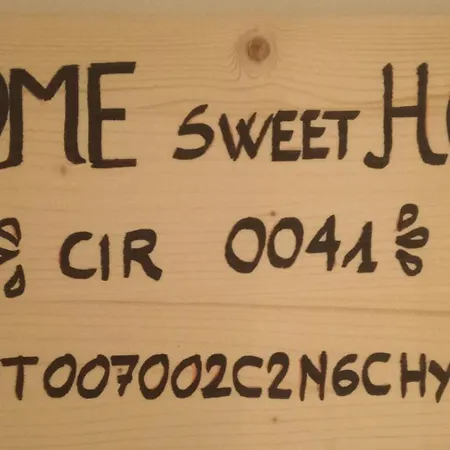 OME SWEET HO
CIR 0041
T007002C2N6CHY